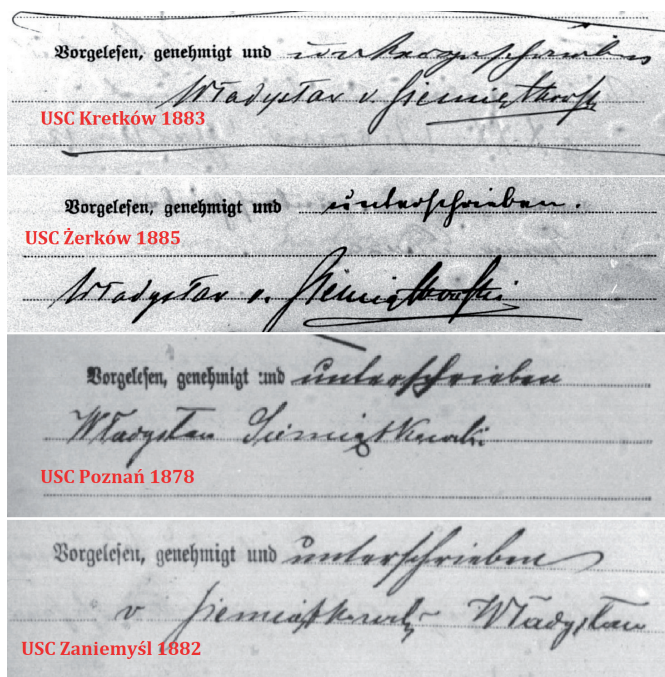 Vorgelesen, genehmigt und unterschrieben
Władysław v. Siemiątkowski
USC Kretków 1883
Vorgelesen, genehmigt und unterschrieben.
USC Żerków 1885
Władysław v. Siemiątkowski
Vorgelesen, genehmigt und unterschrieben
Władysław Siemiątkowski
USC Poznań 1878
Vorgelesen, genehmigt und unterschrieben
v Siemiątkowski Władysław
USC Zaniemyśl 1882